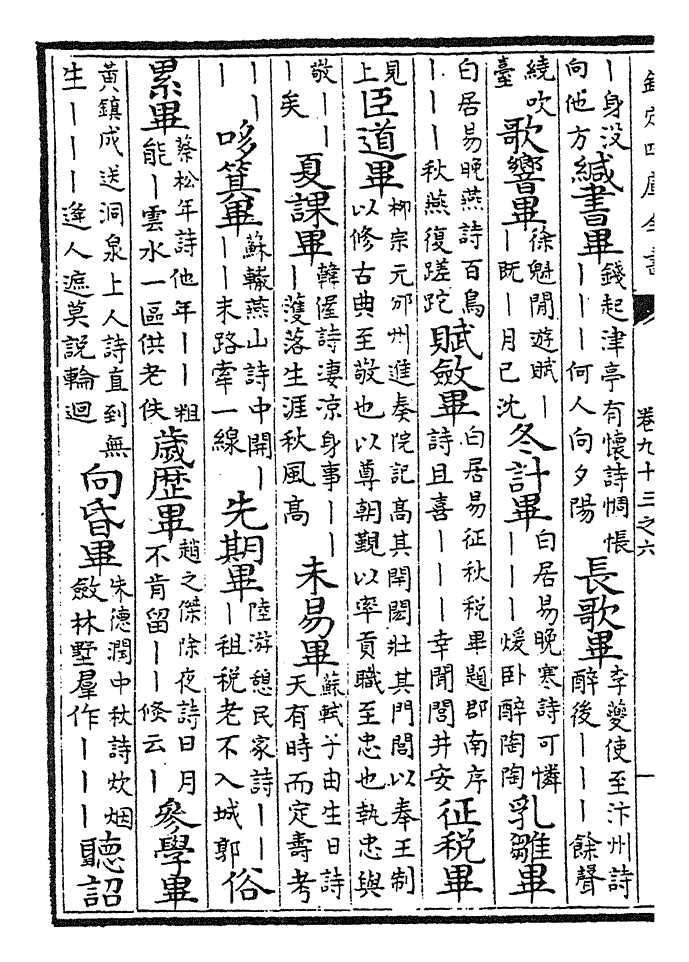 欽定四庫全書 卷九十三之六 一
｜身没向他方緘書畢錢起津亭有懷詩惆悵｜｜｜何人向夕陽長歌畢李夔使至汴州詩醉後｜｜｜餘聲
繞吹臺歌響畢徐魁閒遊賦｜｜既｜月已沈冬計畢白居易晚寒詩可憐｜｜｜煖卧醉陶陶乳雛畢
白居易晚燕詩百鳥｜｜｜秋燕復蹉跎賦斂畢白居易征秋税畢題郡南序詩且喜｜｜｜幸聞閭井安征税畢
見上臣道畢栁宗元邠州進奏院記髙其閈閎壯其門閭以奉王制以修古典至敬也以尊朝覲以率貢職至忠也執忠與
敬｜｜｜矣夏課畢韓偓詩凄凉身事｜｜｜濩落生涯秋風髙未易畢蘇軾子由生日詩天有時而定壽考
｜｜｜｜哆箕畢蘇轍燕山詩中開｜｜｜末路牽一線先期畢陸游憩民家詩｜｜｜租税老不入城郭俗
累畢蔡松年詩他年｜｜粗能｜雲水一區供老佚歲歴畢趙之傑除夜詩日月不肯留｜｜倐云｜參學畢
黃鎮成送洞泉上人詩直到無生｜｜｜逢人遮莫說輪迴向昏畢朱德潤中秋詩炊烟斂林墅羣作｜｜｜聽詔